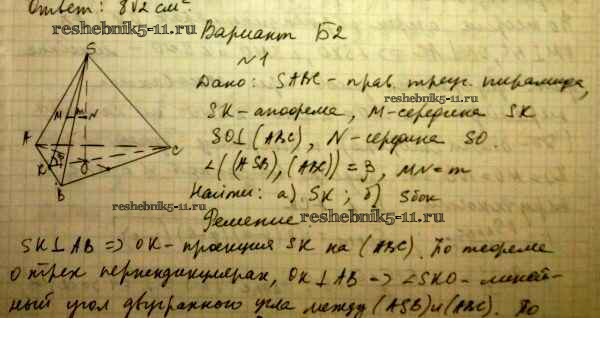 Ответ: 8√2 см².
reshebnik5-11.ru
Вариант Б2
N1
Дано: SABC - прав. треуг. пирамида,
reshebnik5-11.ru
SK - апофема, M - середина SK
SO⊥(ABC), N - середина SO.
∠((ASB),(ABC)) = β, MN = m
Найти: а) SK; б) Sбок
reshebnik5-11.ru
Решение:
reshebnik5-11.ru
S
M
N
A
K
O
C
B
SK⊥AB => OK - проекция SK на (ABC). По теореме
о трех перпендикулярах, OK⊥AB => ∠SKO - линей-
ный угол двугранного угла между (ASB) и (ABC). По